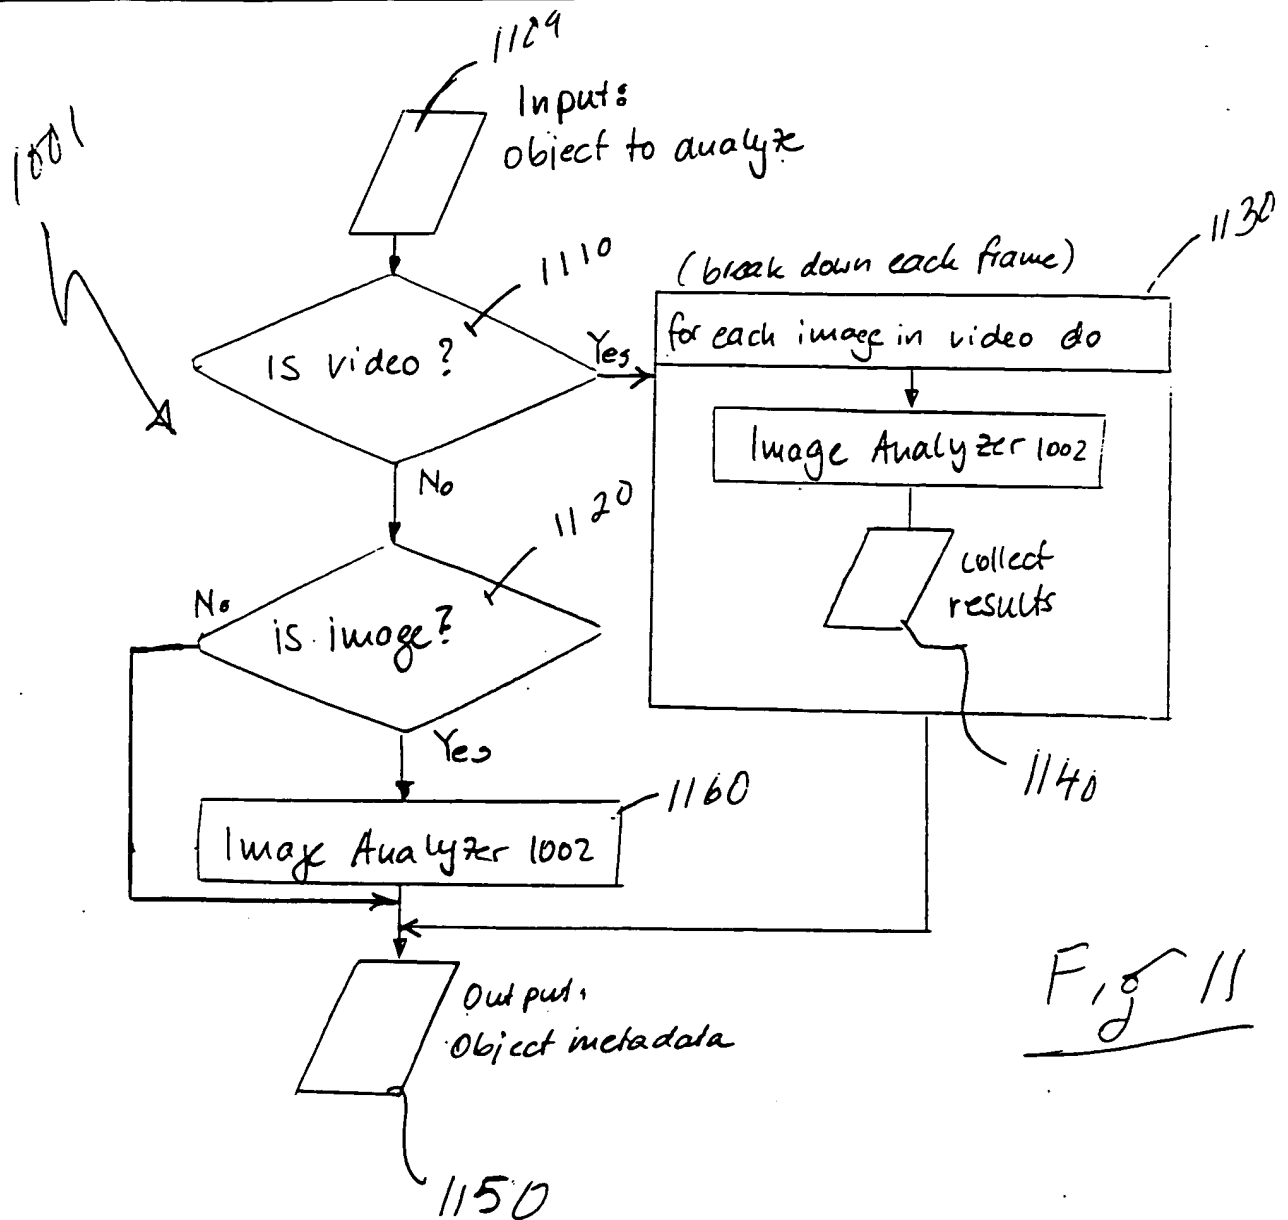 1129
Input:
object to analyze
1001
1110
is video?
Yes
No
(break down each frame)
1130
for each image in video do
Image Analyzer 1002
collect
results
1140
1120
is image?
No
Yes
1160
Image Analyzer 1002
Output:
Object metadata
1150
Fig 11